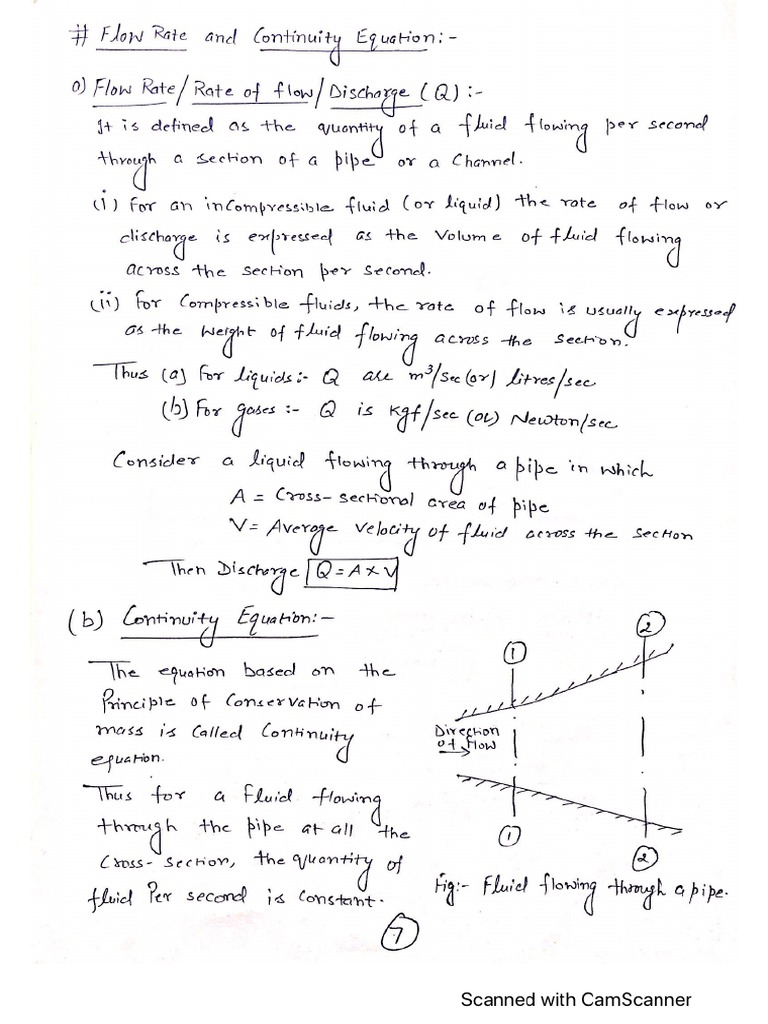 # Flow Rate and Continuity Equation:-
a) Flow Rate/Rate of flow/Discharge (Q) :-
It is defined as the quantity of a fluid flowing per second
through a section of a pipe or a Channel.
(i) For an incompressible fluid (or liquid) the rate of flow or
discharge is expressed as the Volume of fluid flowing
across the section per second.
(ii) For Compressible fluids, the rate of flow is usually expressed
as the Weight of fluid flowing across the section.
Thus (a) For liquids:- Q are m³/sec (or) litres/sec
(b) For gases :- Q is kgf/sec (OR) Newton/sec
Consider a liquid flowing through a pipe in which
A = Cross-sectional area of pipe
V = Average Velocity of fluid across the section
Then Discharge Q = A x V
(b) Continuity Equation:-
The equation based on the
Principle of Conservation of
mass is Called Continuity
equation.
Thus for a fluid flowing
through the pipe at all the
Cross-section, the quantity of
fluid Per second is Constant.
1
2
Direction
of flow
1
2
Fig:- Fluid flowing through a pipe.
7
Scanned with CamScanner